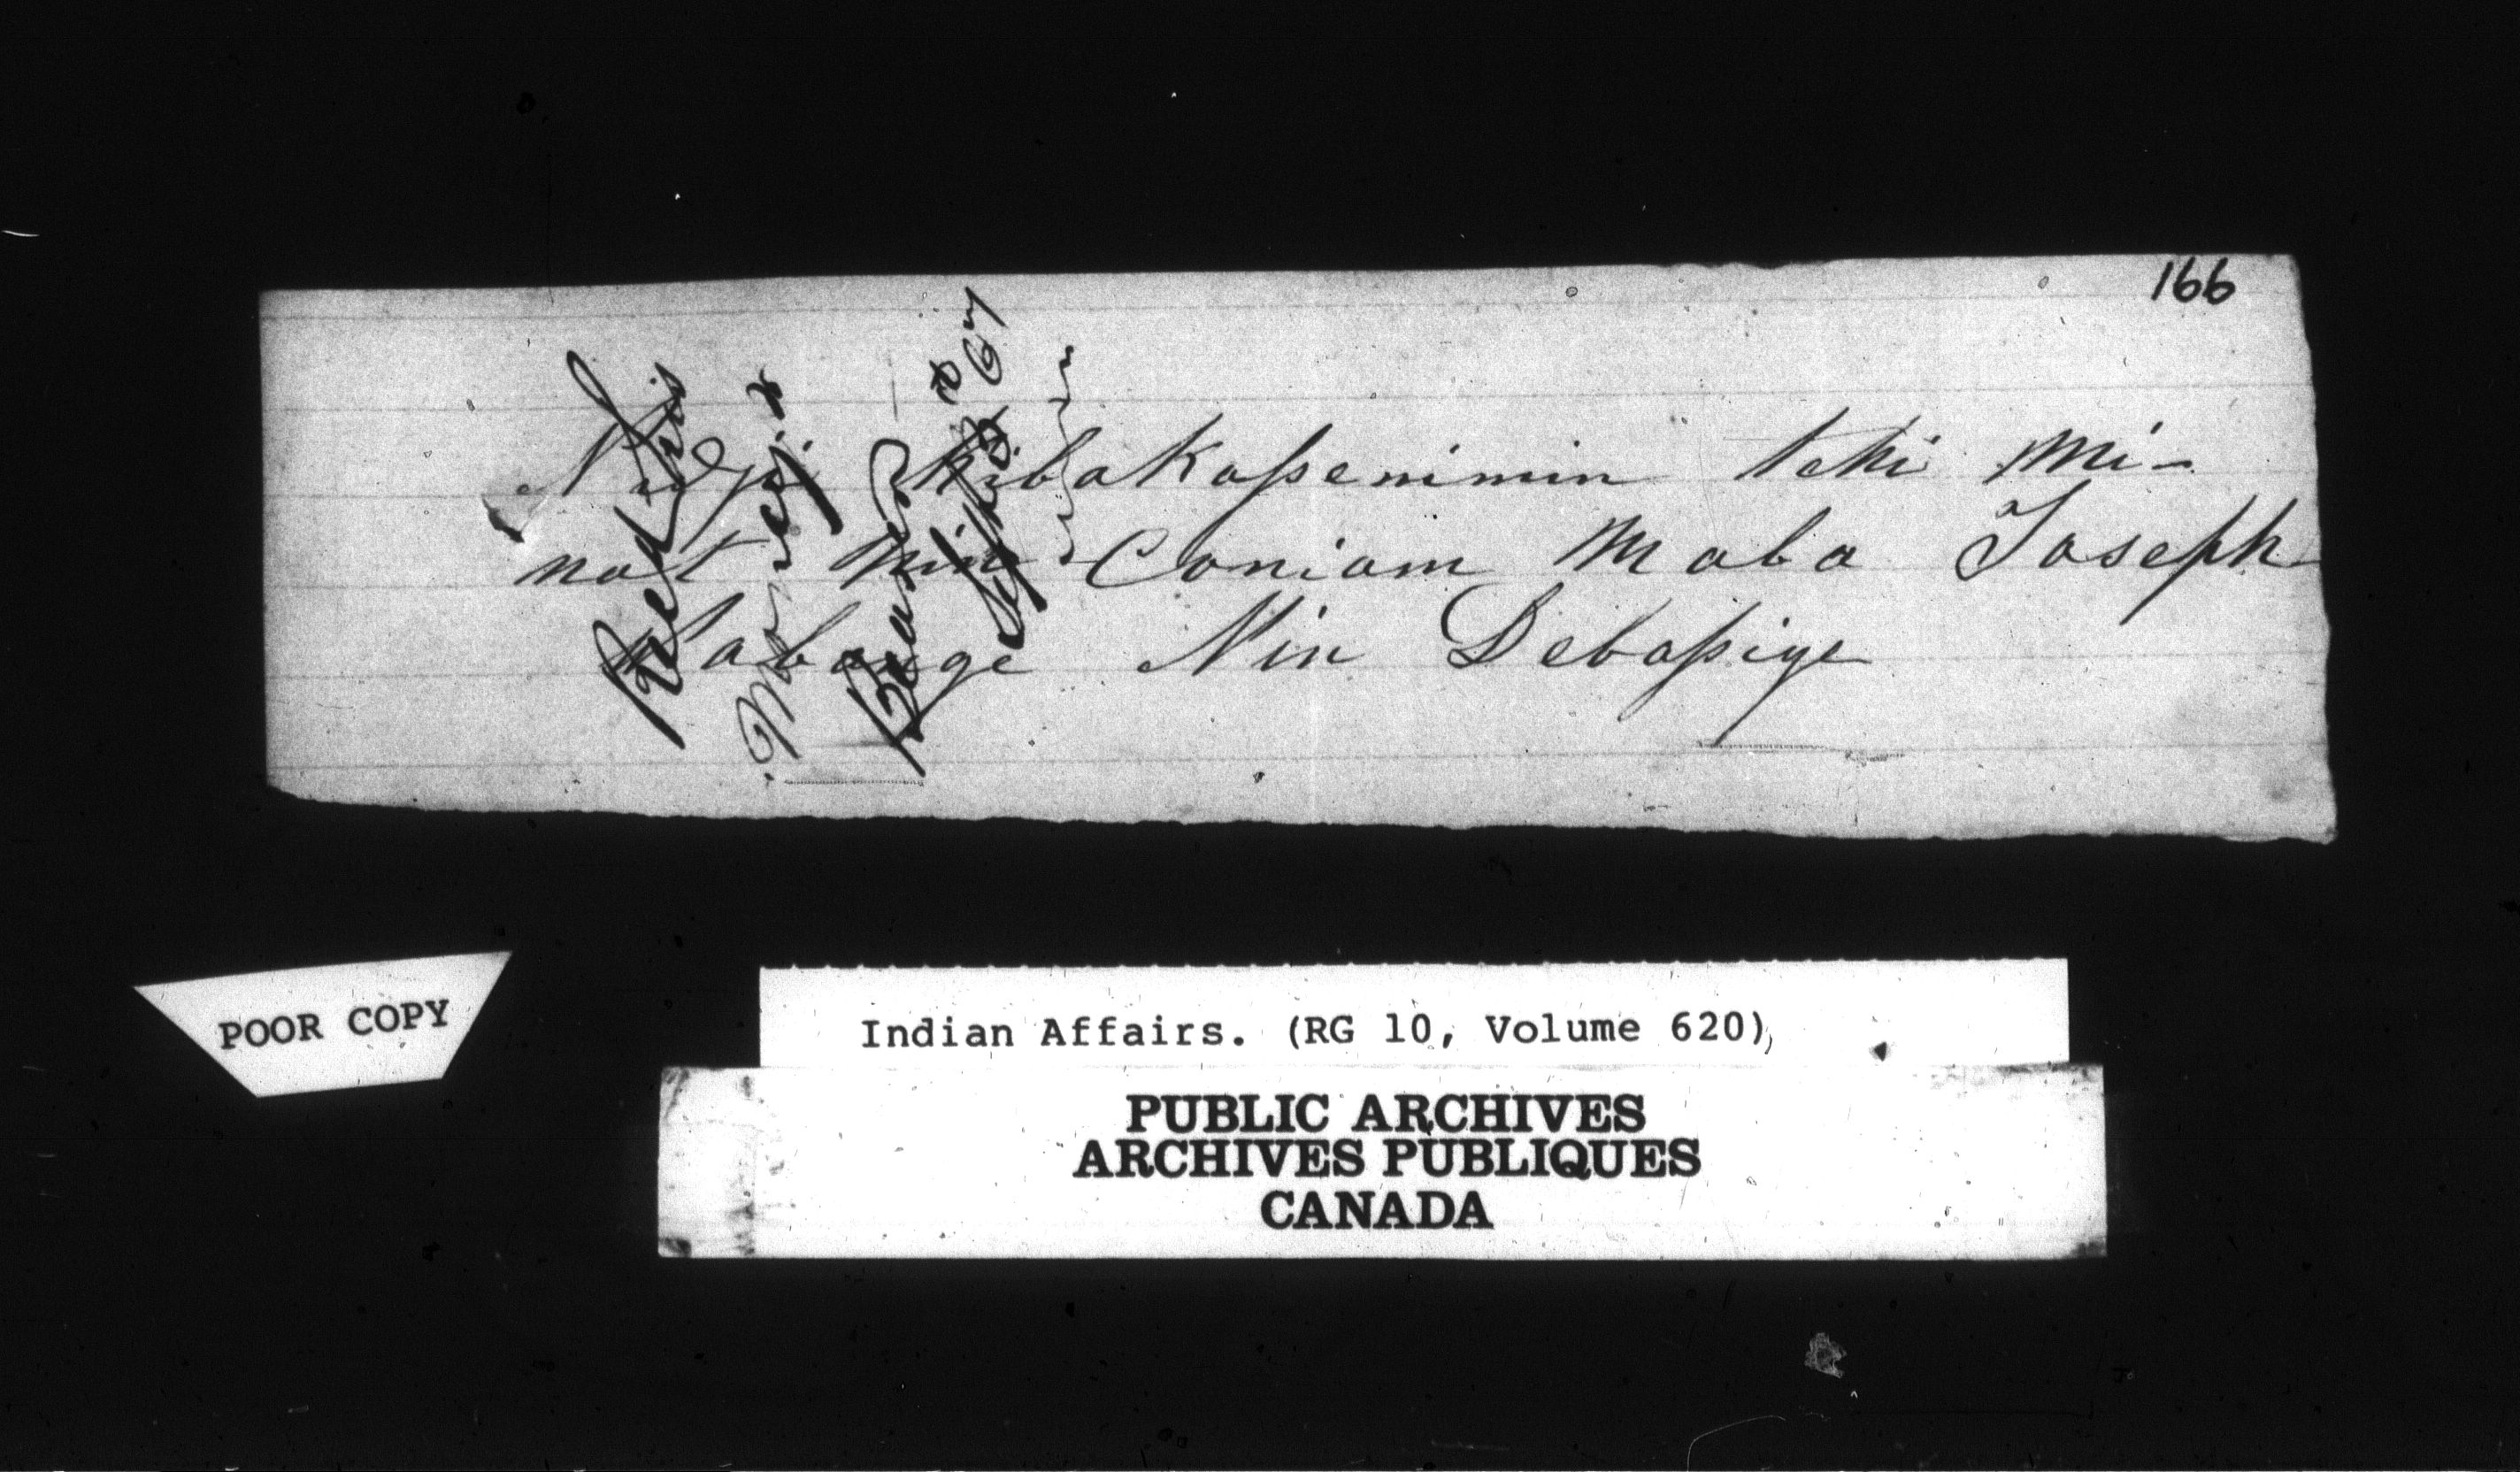 166
Nidji kibakassenimin tchi mi-
nat nin Coniam Maba Joseph
Nin Debassige
Rec'd this
Money
POOR COPY
Indian Affairs. (RG 10, Volume 620)
PUBLIC ARCHIVES
ARCHIVES PUBLIQUES
CANADA